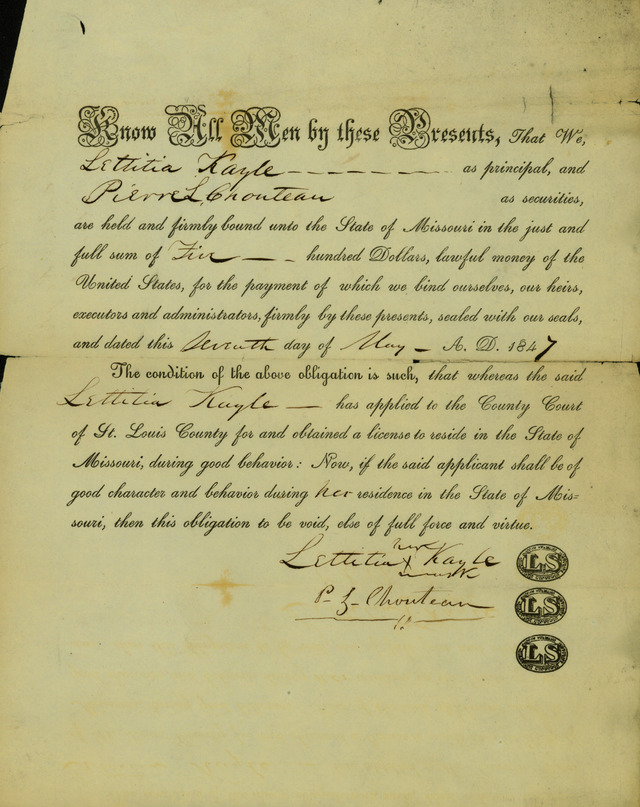 Know All Men by these Presents, That We,
Lettitia Kayle as principal, and
Pierre L Chouteau as securities,
are held and firmly bound unto the State of Missouri in the just and
full sum of Five hundred Dollars, lawful money of the
United States, for the payment of which we bind ourselves, our heirs,
executors and administrators, firmly by these presents, sealed with our seals,
and dated this Seventh day of May A. D. 1847
The condition of the above obligation is such, that whereas the said
Lettitia Kayle has applied to the County Court
of St. Louis County for and obtained a license to reside in the State of
Missouri, during good behavior: Now, if the said applicant shall be of
good character and behavior during her residence in the State of Mis=
souri, then this obligation to be void, else of full force and virtue.
her
Lettitia X Kayle
mark
LS
P. L. Chouteau
LS
LS